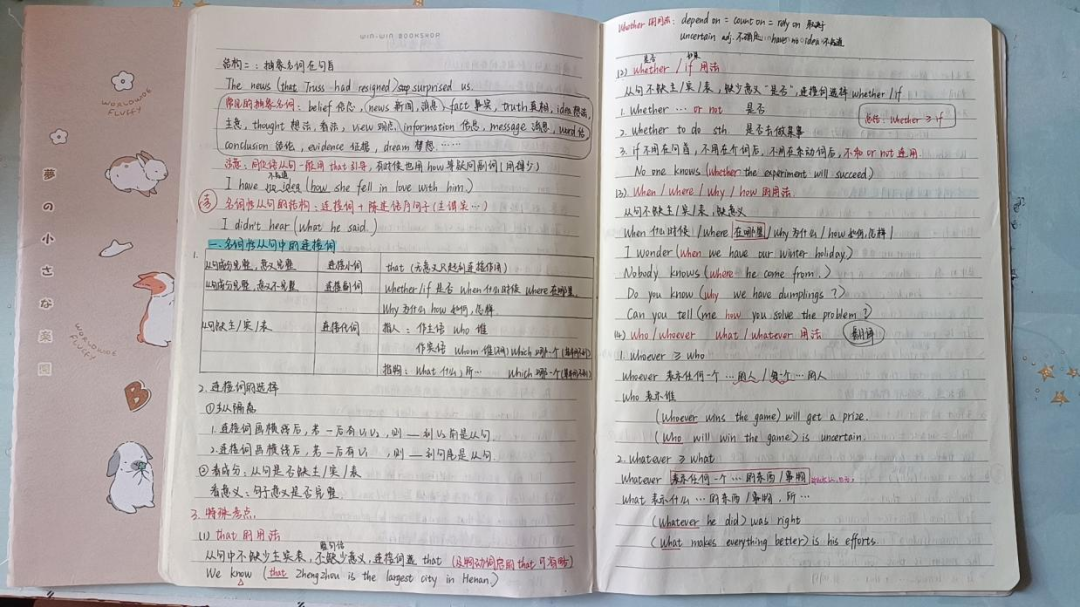 WORLDWIDE
FLUFFY
夢の小さな楽園
WORLDWIDE
FLUFFY
B
WIN-WIN BOOKSHOP
结构二：抽象名词在句首
The news (that Truss had resigned) surprised us.
常见的抽象名词：belief 信念，(news 新闻，消息) fact 事实，truth 真相，idea 想法，
主意，thought 想法，看法，view 观点，information 信息，message 消息，word 话
conclusion 结论，evidence 证据，dream 梦想……
注意：同位语从句一般用 that 引导，有时候也用 how 等疑问副词（用得少）
不知道
I have no idea (how she fell in love with him.)
名词性从句的结构：连接词 + 陈述语序句子（主谓宾…）
I didn't hear (what he said.)
一.名词性从句中的连接词
1.
从句成分完整，意义完整 连接小词 that（无意义只起到连接作用）
从句成分完整，意义不完整 连接副词 Whether/if 是否 When 什么时候 Where 在哪里
Why 为什么 how 如何，怎样
从句缺主/宾/表 连接代词 指人：作主语 who 谁
作宾语 whom 谁 Which 哪一个
指物：What 什么；所… Which 哪一个
2.连接词的选择
①纵隔离
1.连接词画横线后，若一后有V₁V₂，则 — 到V₂前是从句.
2.连接词画横线后，若一后有V₁ ，则 — 到句尾是从句.
②看成分：从句是否缺主/宾/表
看意义：句子意义是否完整.
3.特殊考点.
(1) that 的用法
从句中不缺少主宾表，不缺少意义，连接词選 that（及物动词后的 that 可省略）
We know (that Zhengzhou is the largest city in Henan.)
Whether 的用法：depend on = count on = rely on
uncertain adj. 不确定 have no idea 不知道
是否 如果
(2) whether / if 用法
从句不缺主/宾/表，缺少意义"是否"，连接词选择 whether/if
1. Whether … or not 是否
总结：Whether ≥ if
2. Whether to do sth 是否去做某事
3. if 不用在句首，不用在介词后，不用在系动词后，不和 or not 连用
No one knows (whether the experiment will succeed)
(3) When / where / why / how 的用法.
从句不缺主/宾/表，缺意义
When 什么时候 / where 在哪里 / why 为什么 / how 如何，怎样 /
I wonder (when we have our winter holiday.)
Nobody knows (where he come from.)
Do you know (why we have dumplings ?)
Can you tell (me how you solve the problem ?)
(4) Who/whoever what/whatever 用法 翻译
1. Whoever ≥ who
Whoever 表示任何一个…的人 / 每一个…的人
Who 表示谁
(Whoever wins the game) will get a prize.
(Who will win the game) is uncertain.
2. Whatever ≥ what
Whatever 表示任何一个…的东西/事物
What 表示什么…的东西/事物，所…
(Whatever he did) was right
(What makes everything better) is his efforts